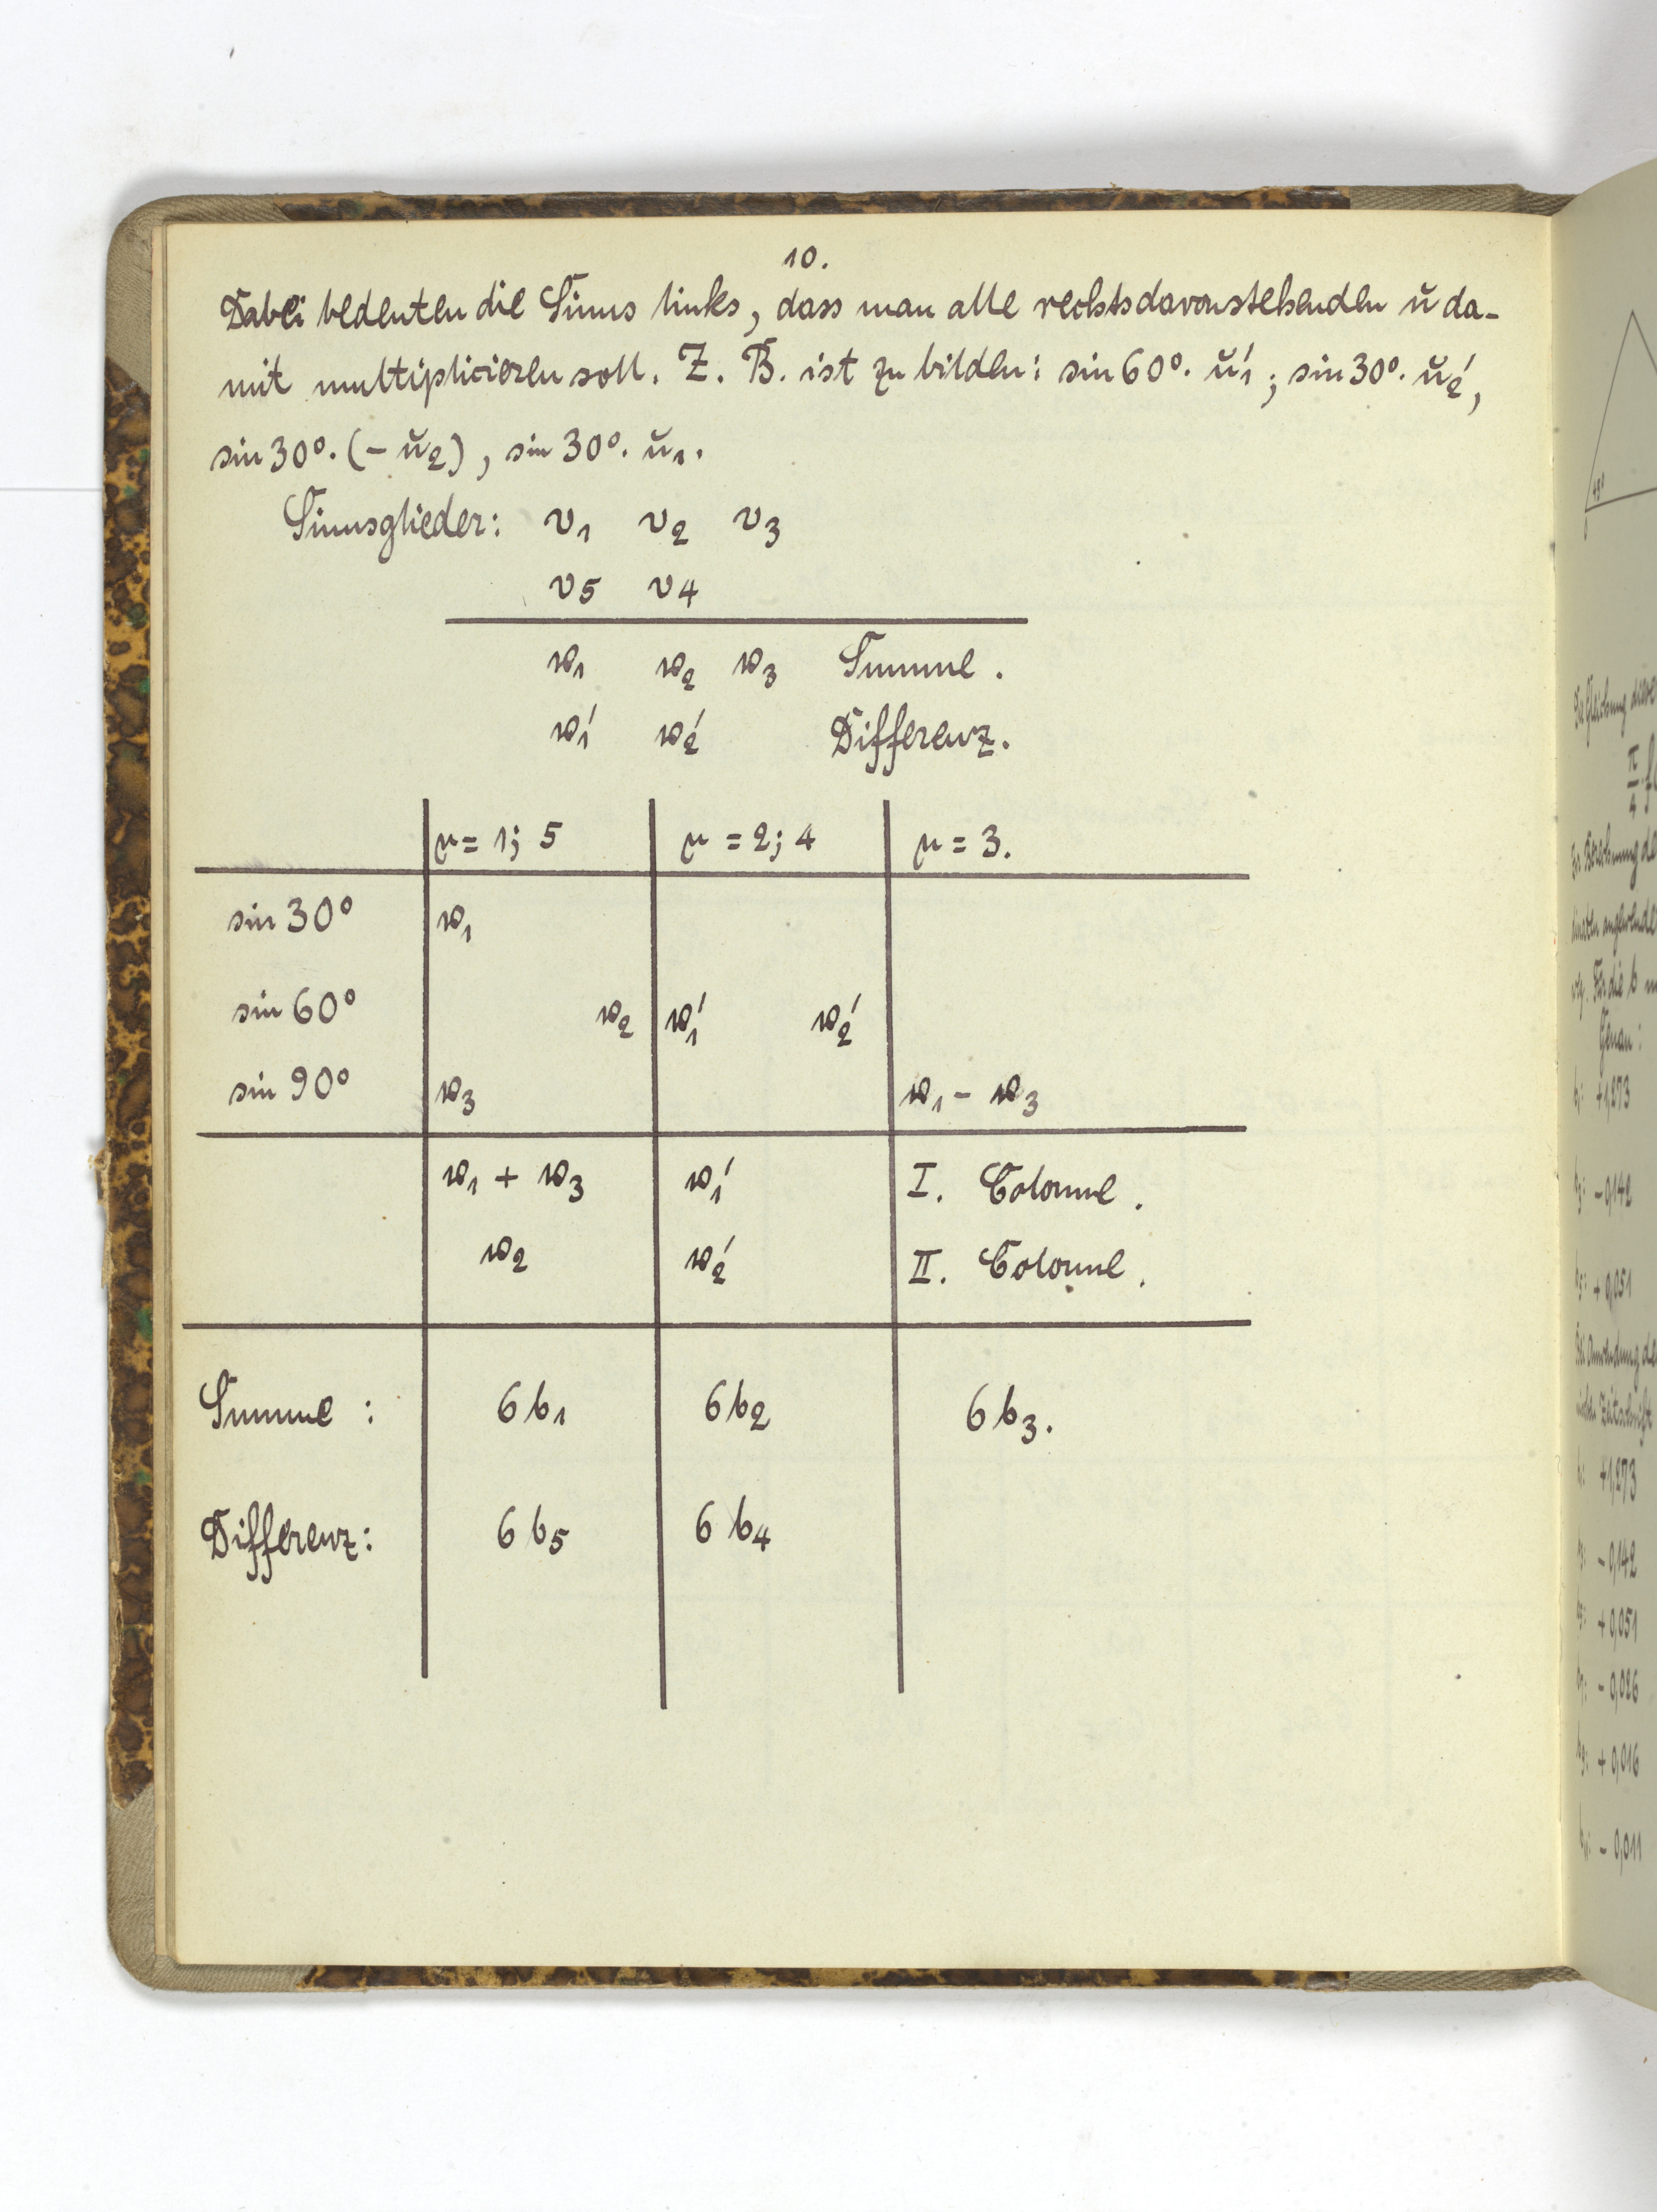 10.
Dabei bedeuten die Sinus links, dass man alle rechtsdavonstehenden ŭ da-
mit multiplicieren soll. Z. B. ist zu bilden: sin 60°. ŭ₁'; sin 30°. ŭ₂',
sin 30°. (- ŭ₂), sin 30°. ŭ₁.
Sinusglieder: v₁ v₂ v₃
v₅ v₄
w₁ w₂ w₃ Summe.
w₁' w₂' Differenz.
μ = 1; 5 μ = 2; 4 μ = 3.
sin 30° w₁
sin 60° w₂ w₁' w₂'
sin 90° w₃ w₁ - w₃
w₁ + w₃ w₁' I. Colonne.
w₂ w₂' II. Colonne.
Summe: 6 b₁ 6 b₂ 6 b₃.
Differenz: 6 b₅ 6 b₄
45°
π
4
Genau:
+1,273
- 0,142
+ 0,051
+1,273
- 0,142
+ 0,051
- 0,026
+ 0,016
- 0,011